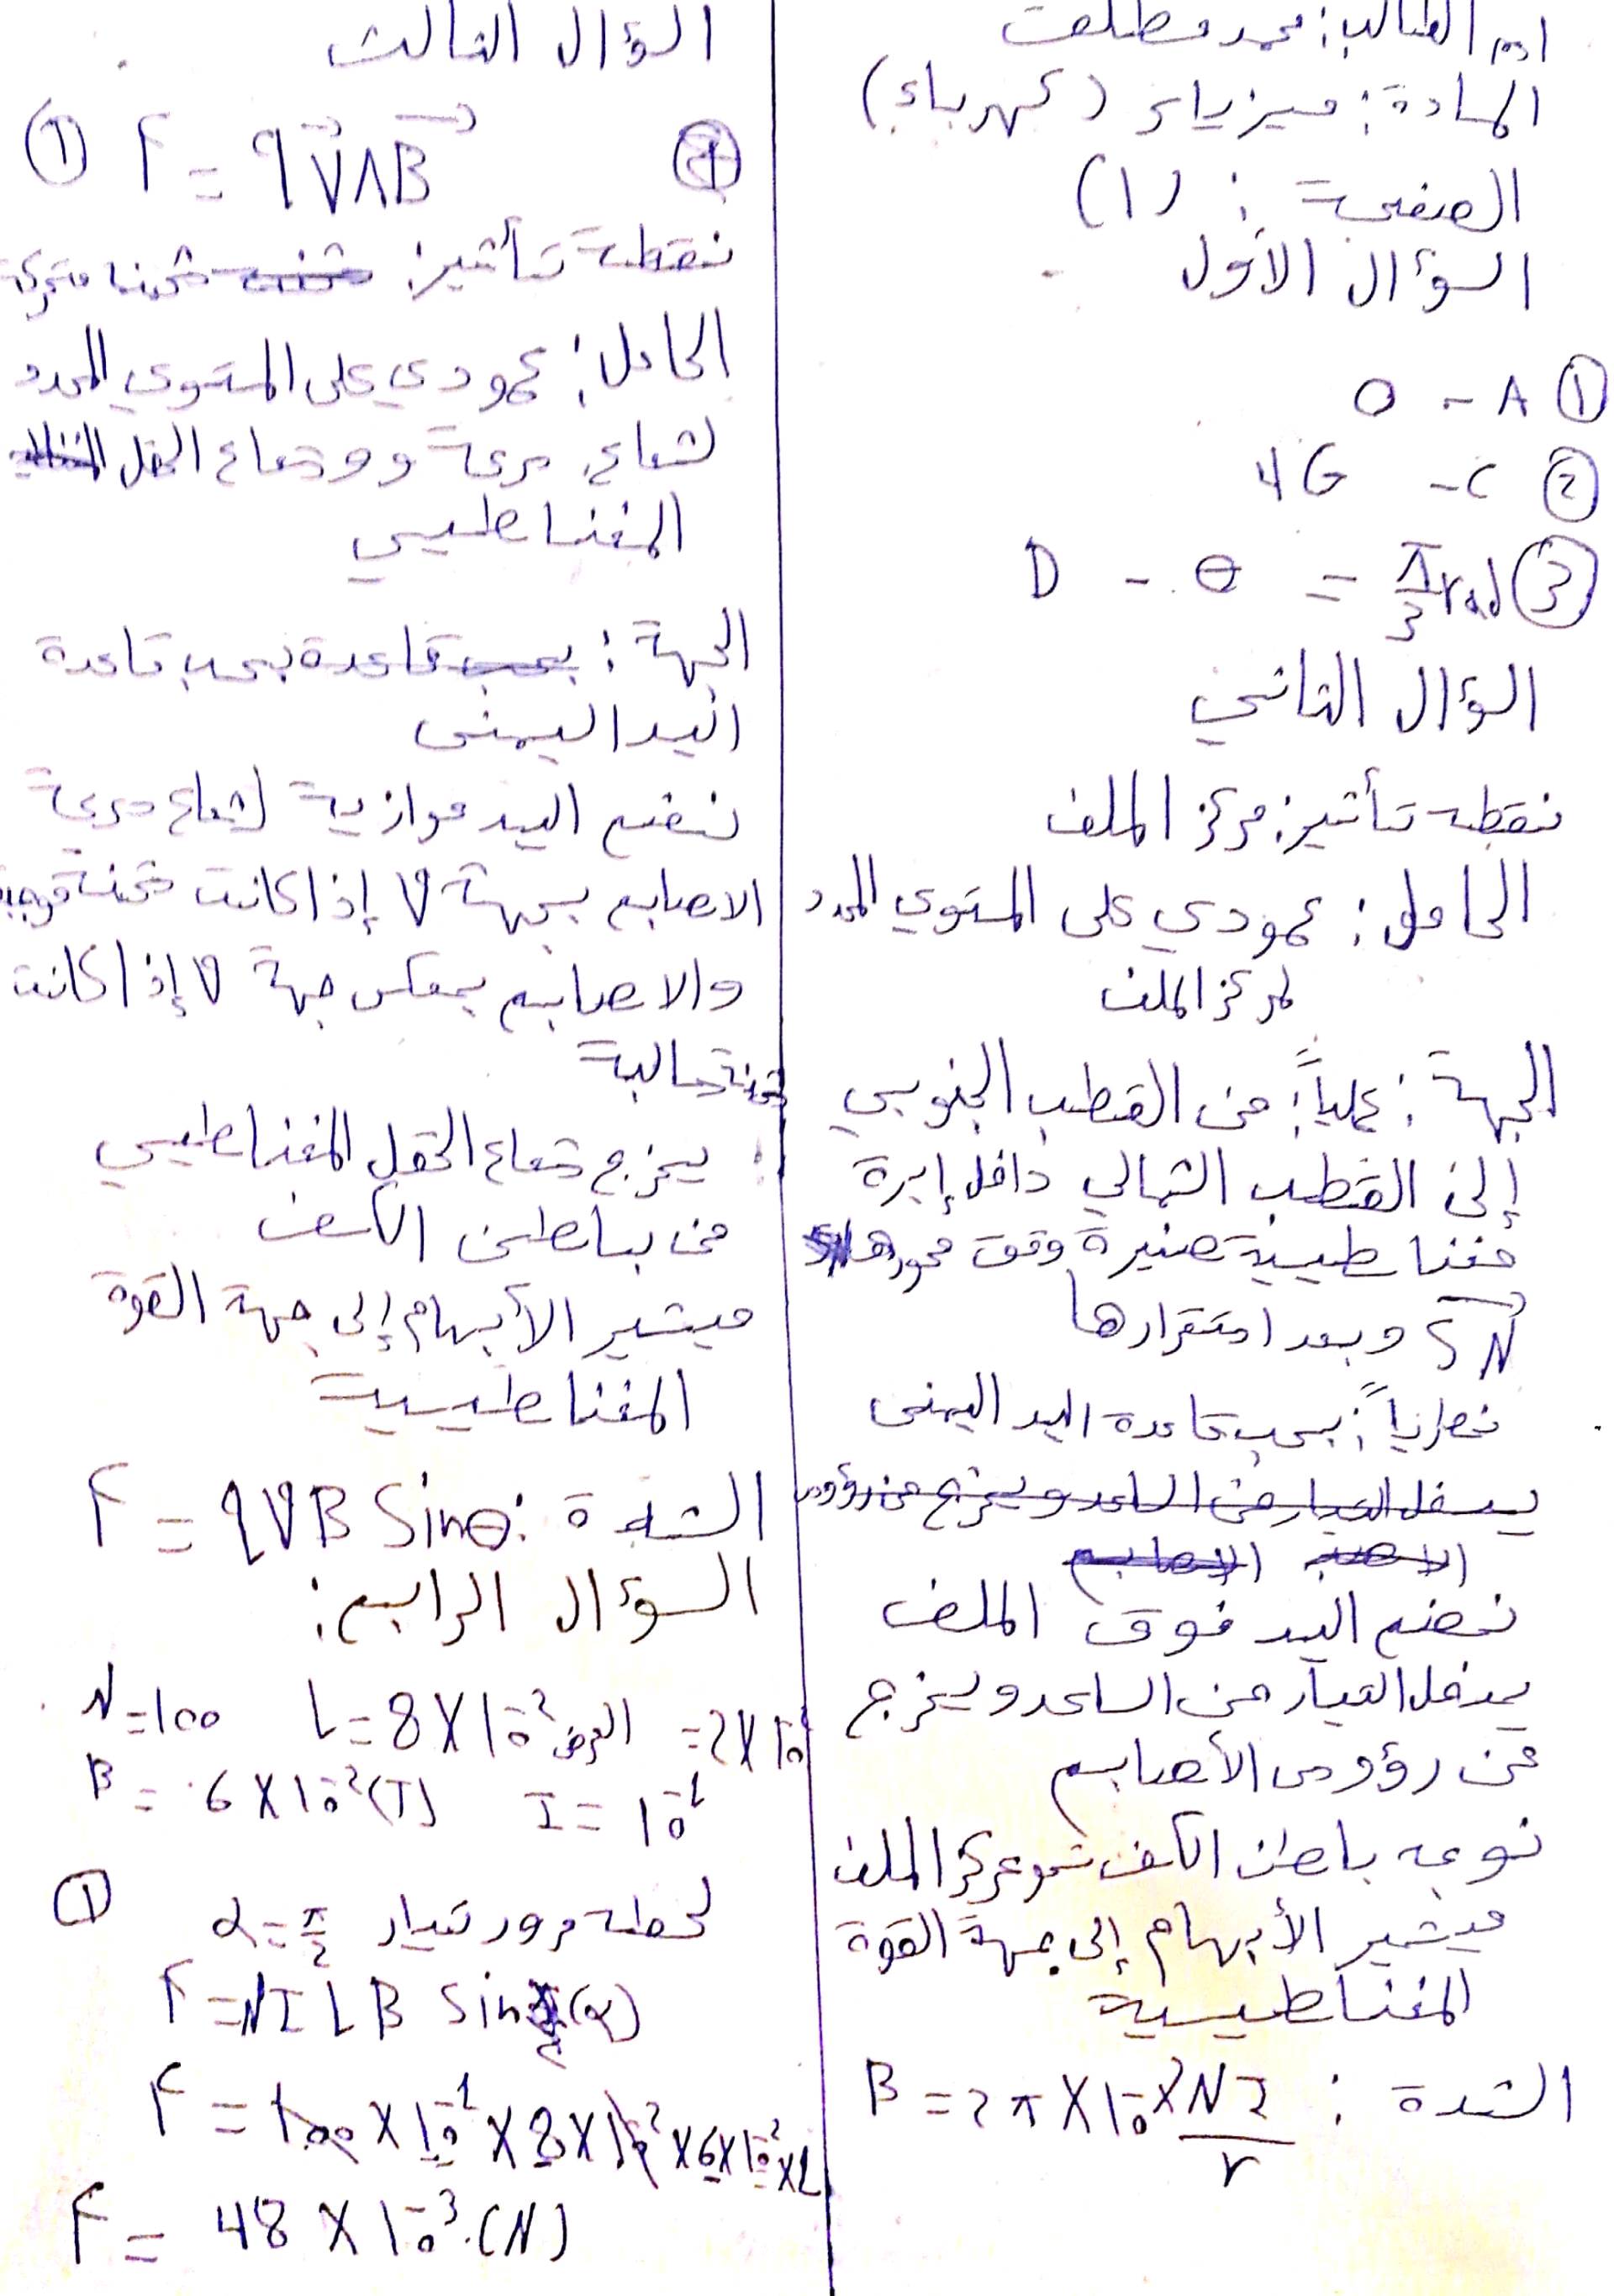 اسم الطالب: محمد مصطفى
المادة: فيزياء (كهرباء)
الصفحة: (1)
السؤال الأول
① A - 0
② C - 4G
③ D - θ = π/3 rad
السؤال الثاني
نقطة تأثير: مركز الملف
الحامل: عمودي على المستوي المحدد
لمركز الملف
الجهة: عملياً: من القطب الجنوبي
إلى القطب الشمالي داخل إبرة
مغناطيسية صغيرة وفق محورها
SN وبعد استقرارها
نظرياً: بحسب قاعدة اليد اليمنى
يدخل التيار من الساعد ويخرج من رؤوس
الأصابع
نضع اليد فوق الملف
يدخل التيار من الساعد ويخرج
من رؤوس الأصابع
نوجه باطن الكف نحو مركز الملف
فيشير الأبهام إلى جهة القوة
المغناطيسية
الشدة: B = 2π × 10⁻⁷ NI/r
السؤال الثالث
① F = qV⃗ΛB⃗
نقطة تأثير: شحنة متحركة
الحامل: عمودي على المستوي المحدد
لشعاع سرعة وشعاع الحقل
المغناطيسي
الجهة: بحسب قاعدة بحسب قاعدة
اليد اليمنى
نضع اليد موازية لشعاع سرعة
الاصابع بجهة v إذا كانت شحنة موجبة
والاصابع بعكس جهة v إذا كانت
شحنة سالبة
يخرج شعاع الحقل المغناطيسي
من باطن الكف
فيشير الأبهام إلى جهة القوة
المغناطيسية
الشدة: F = qVB Sinθ
السؤال الرابع:
N=100 L=8×10⁻² العرض =2×10⁻²
B = 6×10⁻²(T) I = 10⁻¹
① لحظة مرور تيار α=π/2
F = NILB Sin(α)
F = 100 × 10⁻¹ × 8 × 10⁻² × 6 × 10⁻² × 1
F = 48 × 10⁻³ (N)